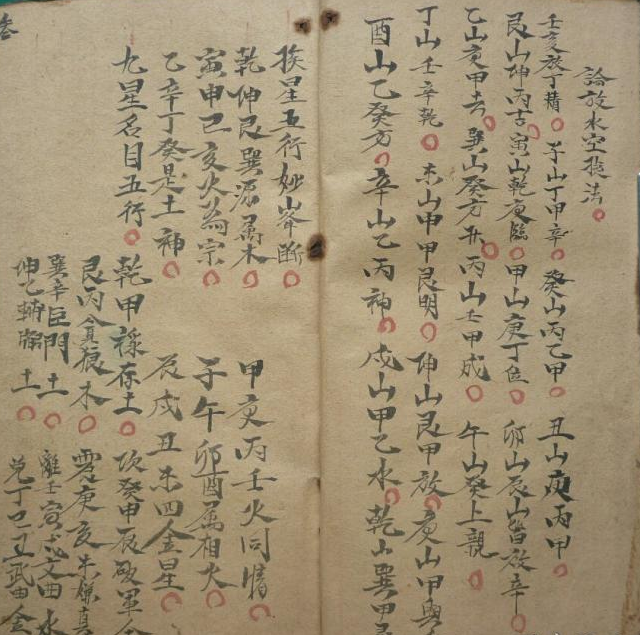 論放水空㨗法
壬亥放丁精 子山丁甲辛 癸山丙乙甲 丑山庚丙甲
艮山坤丙吉 寅山乾庚臨 甲山庚丁位 卯山辰山皆放辛
乙山庚甲去 巽山癸方升 丙山壬甲成 午山癸上親
丁山壬辛乾 未山申甲艮明 坤山艮甲放 庚山甲與
酉山乙癸方 辛山乙丙神 戌山甲乙水 乾山巽甲
挨星五行妙山峯断
乾坤艮巽源属木 甲庚丙壬火同情
寅申巳亥火為宗 子午卯酉属相火
乙辛丁癸是土神 辰戌丑未四金星
九星名目五行
乾甲祿存土 坎癸申辰破軍金
艮丙貪狼木 震庚亥未廉貞
巽辛巨門土 離壬寅戌文曲水
坤乙輔弼土 兌丁巳丑武曲金